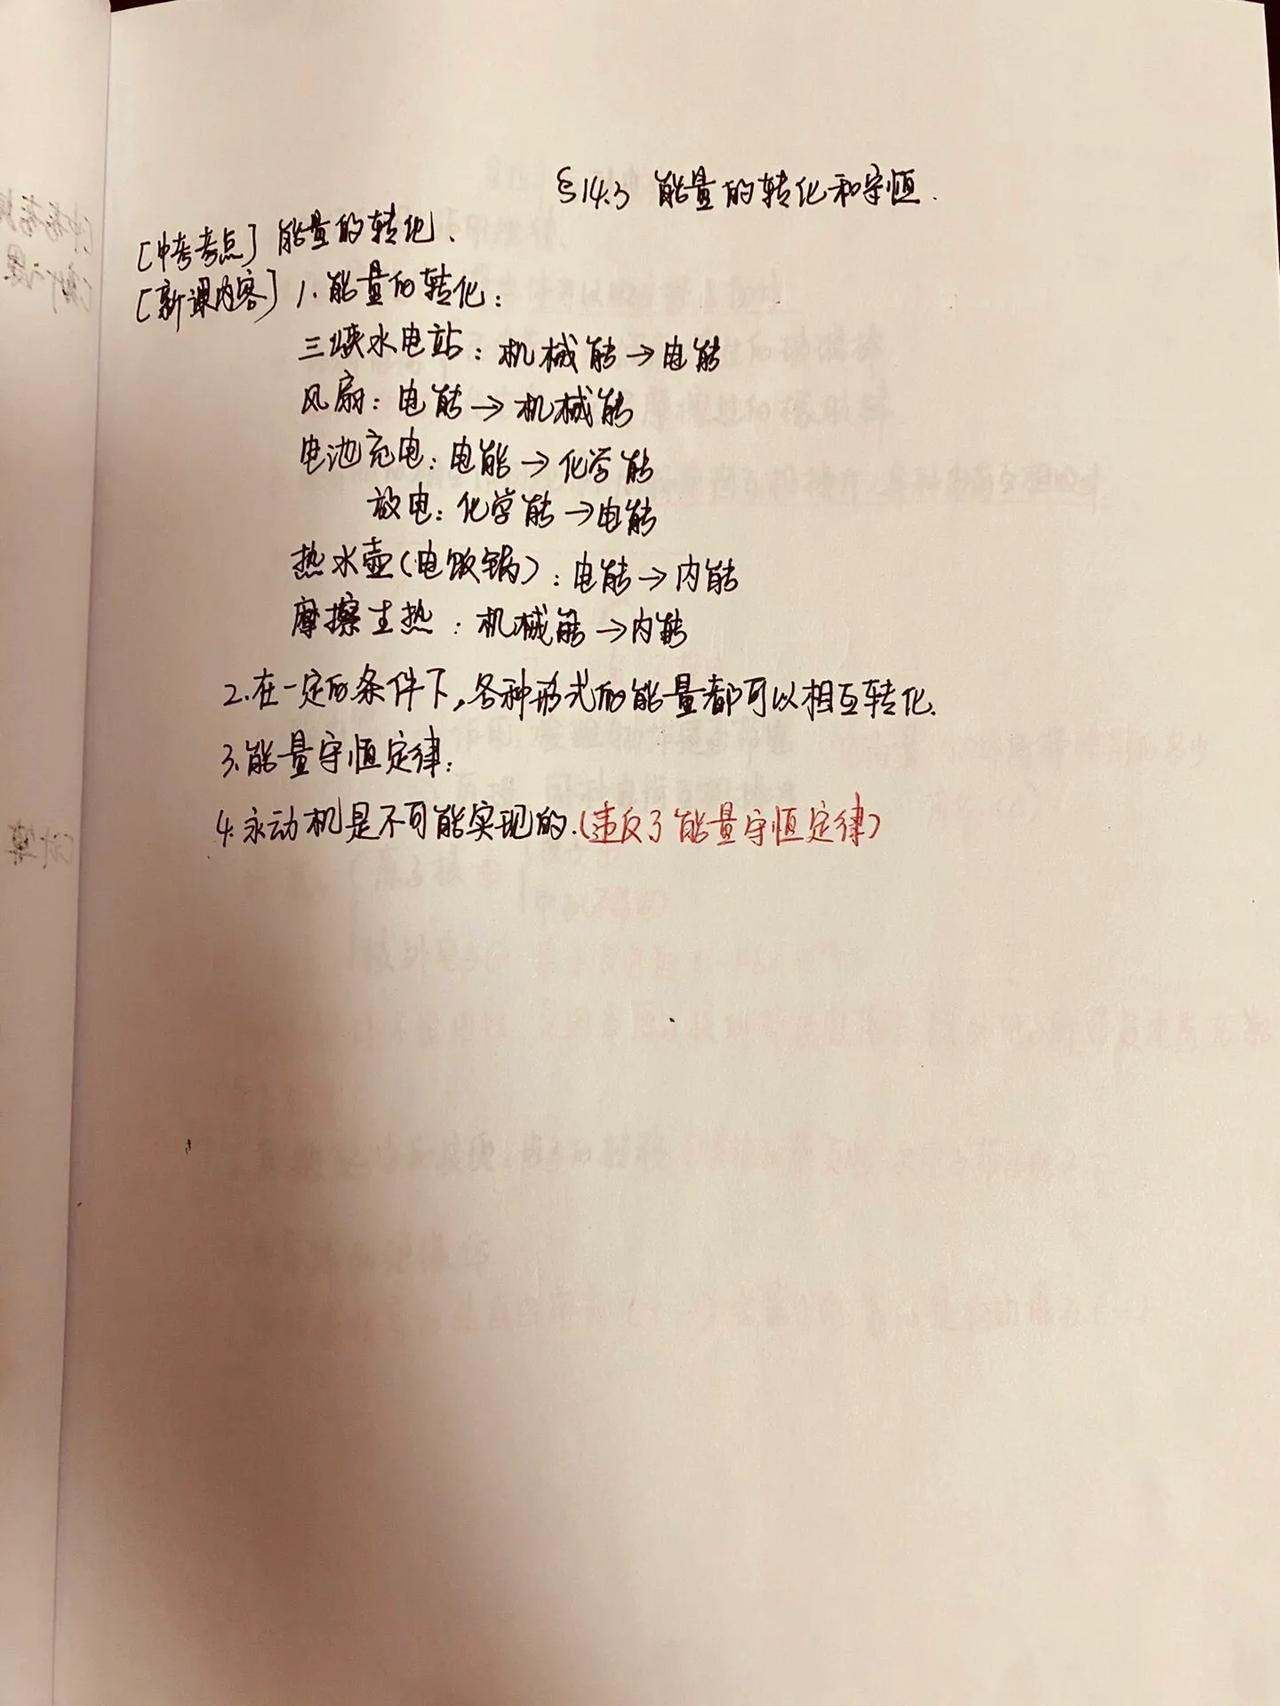 §14.3 能量的转化和守恒.
[中考考点] 能量的转化.
[新课内容] 1.能量的转化:
三峡水电站:机械能→电能
风扇:电能→机械能
电池充电:电能→化学能
放电:化学能→电能
热水壶(电饭锅):电能→内能
摩擦生热:机械能→内能
2.在一定的条件下,各种形式的能量都可以相互转化.
3.能量守恒定律:
4.永动机是不可能实现的.(违反了能量守恒定律)